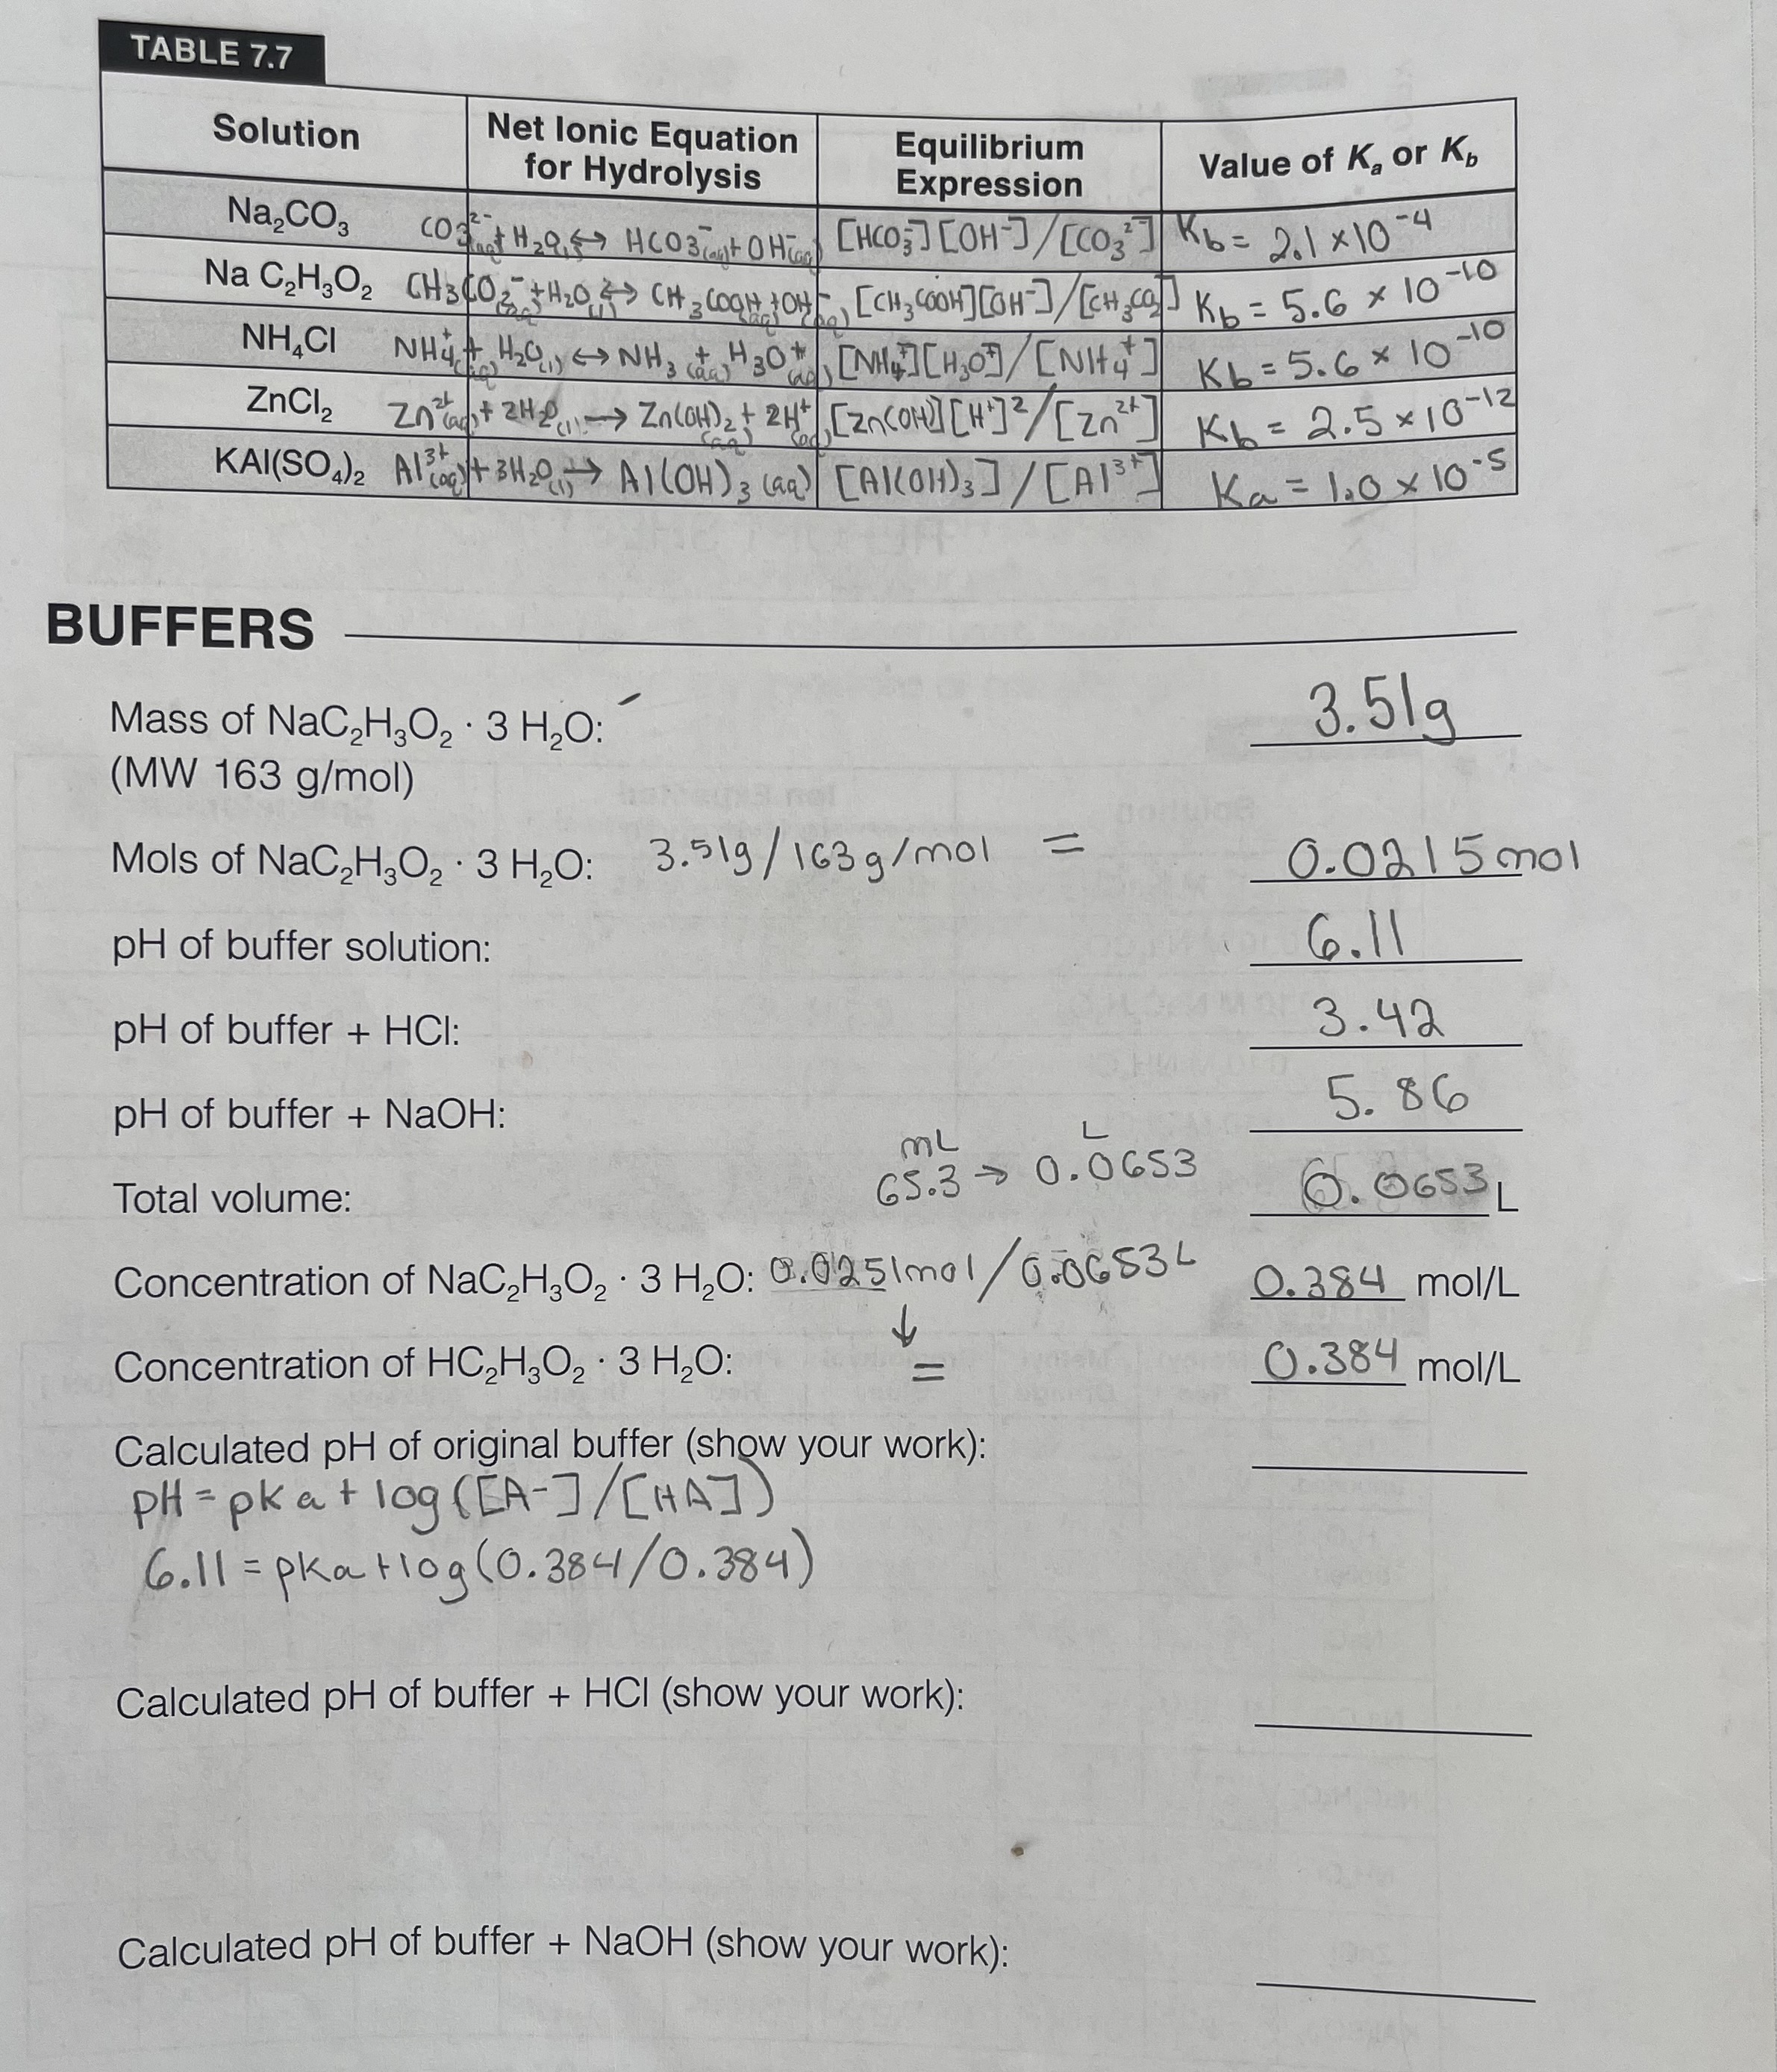 TABLE 7.7
Solution | Net Ionic Equation for Hydrolysis | Equilibrium Expression | Value of Kₐ or K_b
Na₂CO₃ | CO₃²⁻(aq) + H₂O(l) ↔ HCO₃⁻(aq) + OH⁻(aq) | [HCO₃⁻][OH⁻]/[CO₃²⁻] | Kb = 2.1 × 10⁻⁴
Na C₂H₃O₂ | CH₃CO₂⁻(aq) + H₂O(l) ↔ CH₃COOH(aq) + OH⁻(aq) | [CH₃COOH][OH⁻]/[CH₃CO₂⁻] | Kb = 5.6 × 10⁻¹⁰
NH₄Cl | NH₄⁺(aq) + H₂O(l) ↔ NH₃(aq) + H₃O⁺(aq) | [NH₄⁺][H₃O⁺]/[NH₄⁺] | Kb = 5.6 × 10⁻¹⁰
ZnCl₂ | Zn²⁺(aq) + 2H₂O(l) → Zn(OH)₂(aq) + 2H⁺(aq) | [Zn(OH)][H⁺]²/[Zn²⁺] | Kb = 2.5 × 10⁻¹²
KAl(SO₄)₂ | Al³⁺(aq) + 3H₂O(l) → Al(OH)₃(aq) | [Al(OH)₃]/[Al³⁺] | Ka = 1.0 × 10⁻⁵
BUFFERS
Mass of NaC₂H₃O₂ · 3 H₂O: 3.51g
(MW 163 g/mol)
Mols of NaC₂H₃O₂ · 3 H₂O: 3.51g/163g/mol = 0.0215mol
pH of buffer solution: 6.11
pH of buffer + HCl: 3.42
pH of buffer + NaOH: 5.86
mL L
Total volume: 65.3 → 0.0653 0.0653 L
Concentration of NaC₂H₃O₂ · 3 H₂O: 0.0251mol/0.0653L 0.384 mol/L
↓
Concentration of HC₂H₃O₂ · 3 H₂O: = 0.384 mol/L
Calculated pH of original buffer (show your work):
pH = pka + log([A-]/[HA])
6.11 = pka + log(0.384/0.384)
Calculated pH of buffer + HCl (show your work):
Calculated pH of buffer + NaOH (show your work):